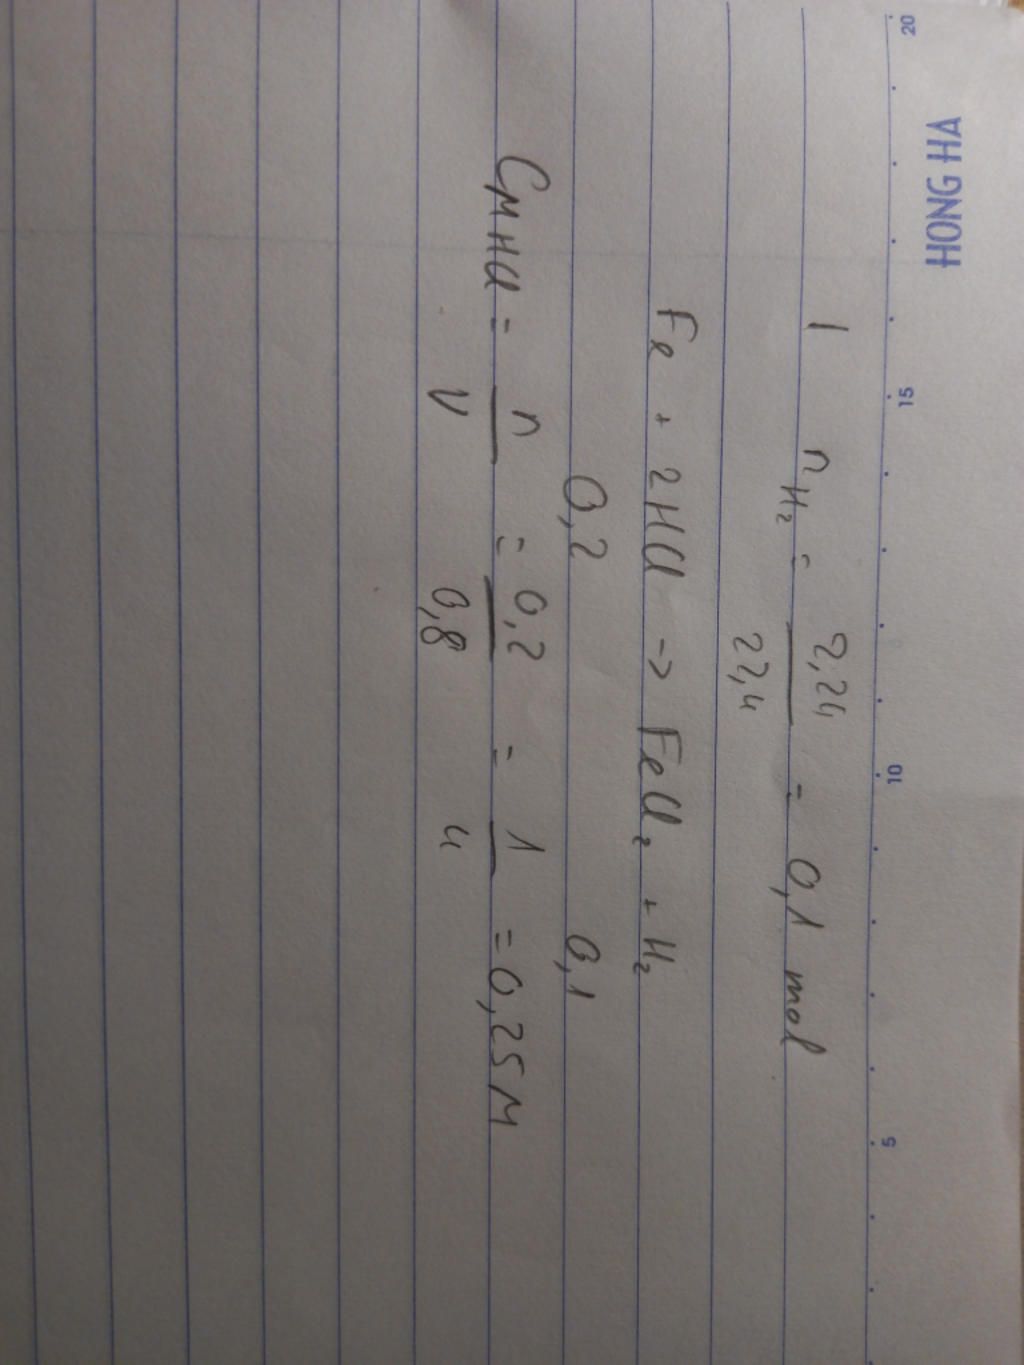 HONG HA
20 15 10 5
1 n H₂ = 2,24 / 22,4 = 0,1 mol
Fe + 2HCl → FeCl₂ + H₂
0,2 0,1
CM HCl = n / V = 0,2 / 0,8 = 1 / 4 = 0,25M